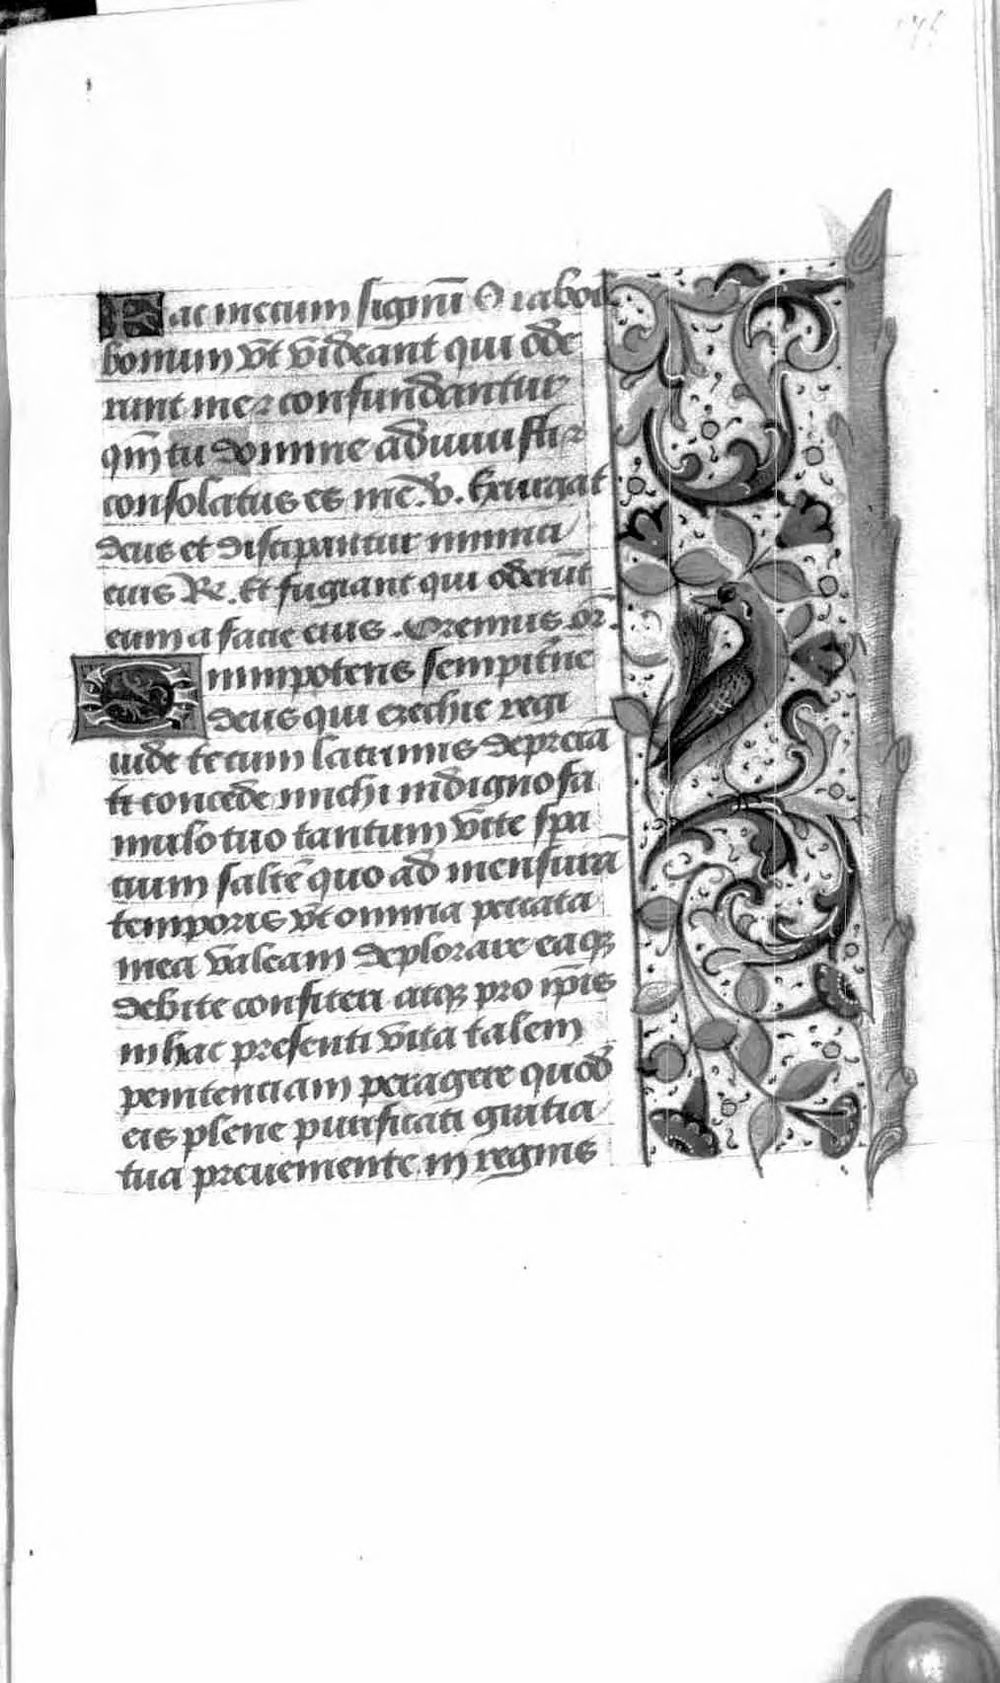 Fac mecum signū O tabod
bonum vt videant qui ode
runt me ⁊ confundantur
qm̄ tu domine adiuuisti ⁊
consolatus es me. v̄. Exurgat
deus et discipantur inimici
eius R̄. Et fugiant qui oderūt
eum a facie eius. Oremus. Or̄.
Omnipotens sempit̄ne
deus qui ezechie regi
iude te cum lacrimis deprecā
ti concede michi indigno fa
mulo tuo tantum vite spa
cium saltē quo ad mensurā
temporis vt omnia peccata
mea valeam deplorare eaqꝫ
debite confiteri atqꝫ pro ip̄is
in hac presenti vita talem
penitenciam peragere quod
eis plene purificati gratia
tua preueniente in regnis